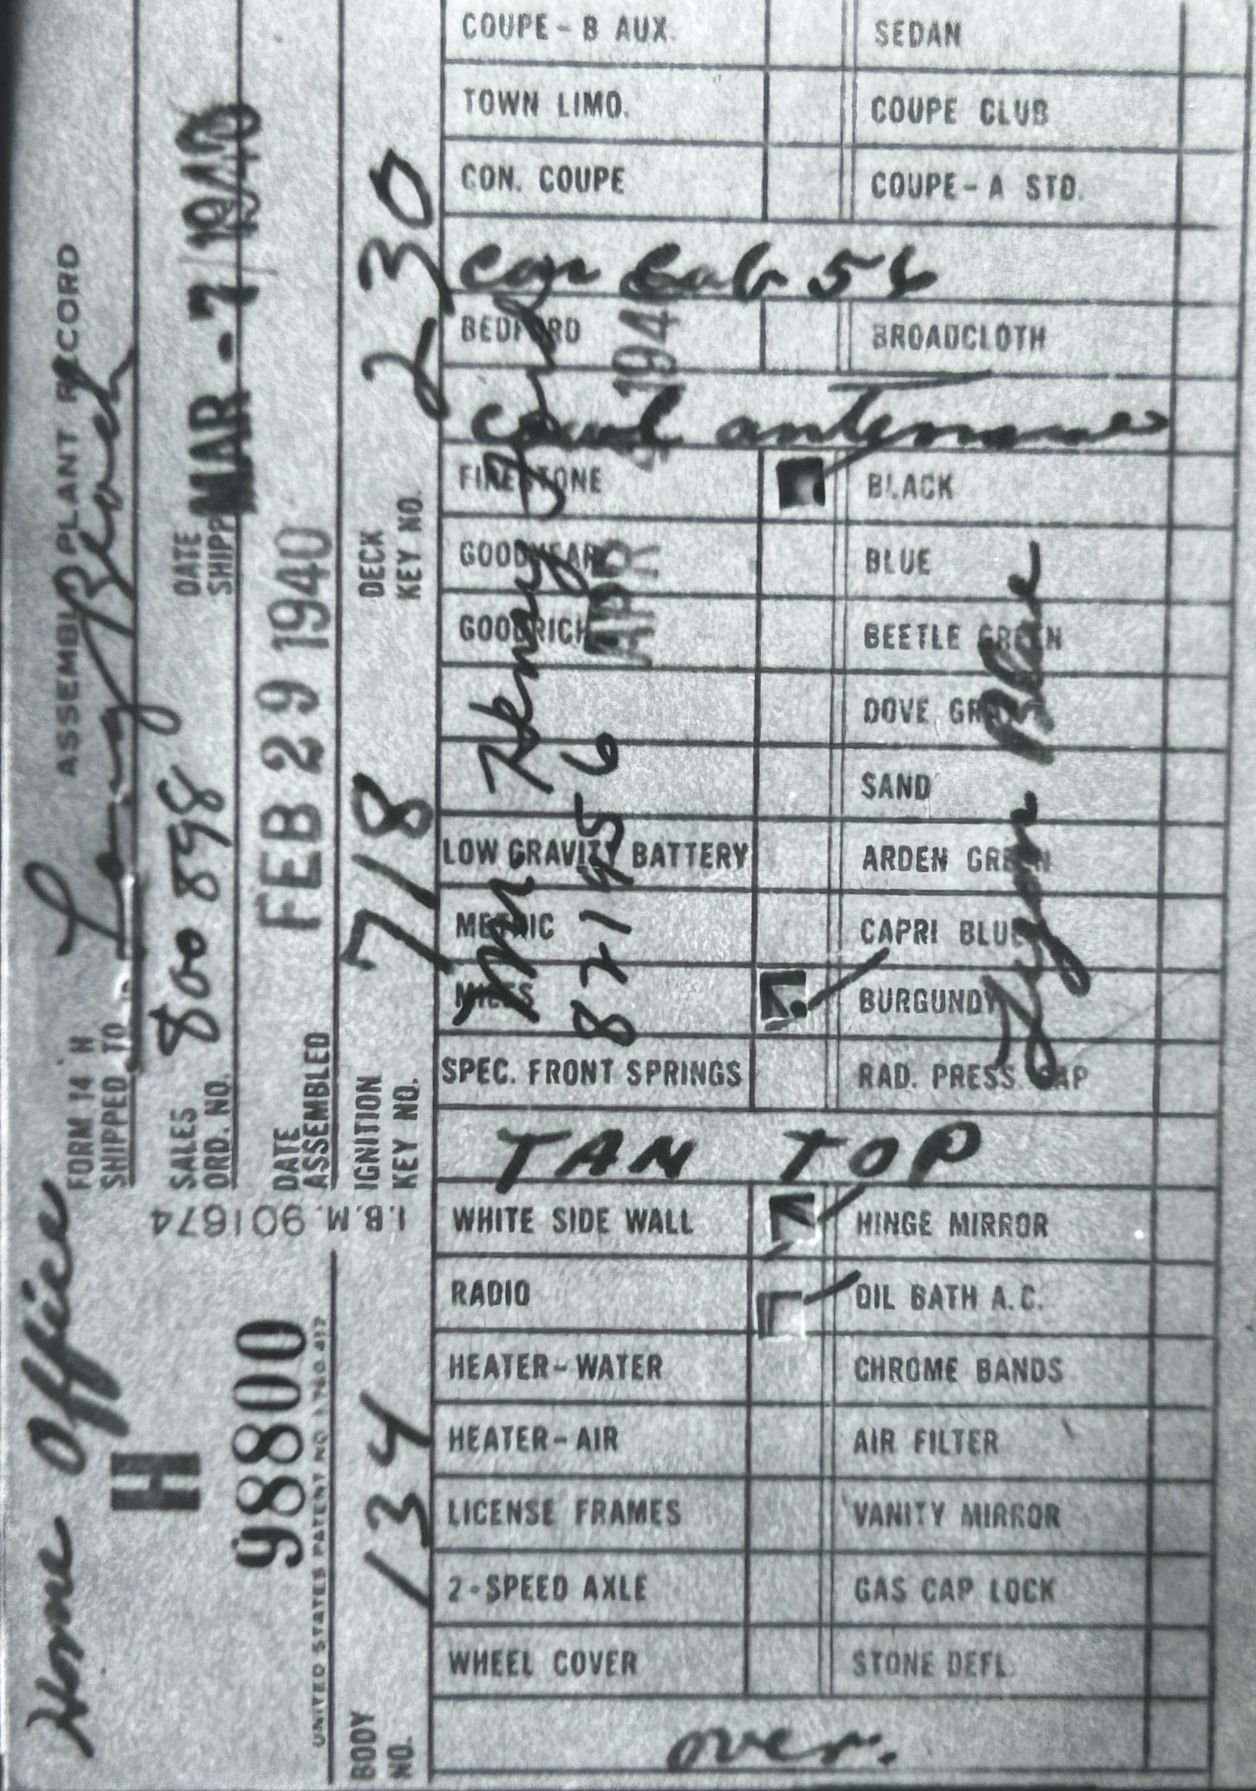 Home Office
H
98800
UNITED STATES PATENT NO. 1 780 417
BODY NO. 134
I.B.M. 901674
FORM 14 H ASSEMBLY PLANT RECORD
SHIPPED TO Long Beach
SALES ORD. NO. 800 898
DATE SHIPP MAR - 7 1940
DATE ASSEMBLED FEB 29 1940
IGNITION KEY NO. 718
DECK KEY NO. 230
COUPE - B AUX. SEDAN
TOWN LIMO. COUPE CLUB
CON. COUPE COUPE - A STD.
Con Cab 56
BEDFORD BROADCLOTH
Cowl antenna
FIRESTONE BLACK
GOODYEAR BLUE
GOODRICH BEETLE GREEN
DOVE GRAY
SAND
LOW GRAVITY BATTERY ARDEN GREEN
METRIC CAPRI BLUE
MILES BURGUNDY
SPEC. FRONT SPRINGS RAD. PRESS. CAP
TAN TOP
WHITE SIDE WALL HINGE MIRROR
RADIO OIL BATH A.C.
HEATER - WATER CHROME BANDS
HEATER - AIR AIR FILTER
LICENSE FRAMES VANITY MIRROR
2 - SPEED AXLE GAS CAP LOCK
WHEEL COVER STONE DEFL.
over.
Mr. Henry Ford
8219456
APR 4 1940
Lyon Blue